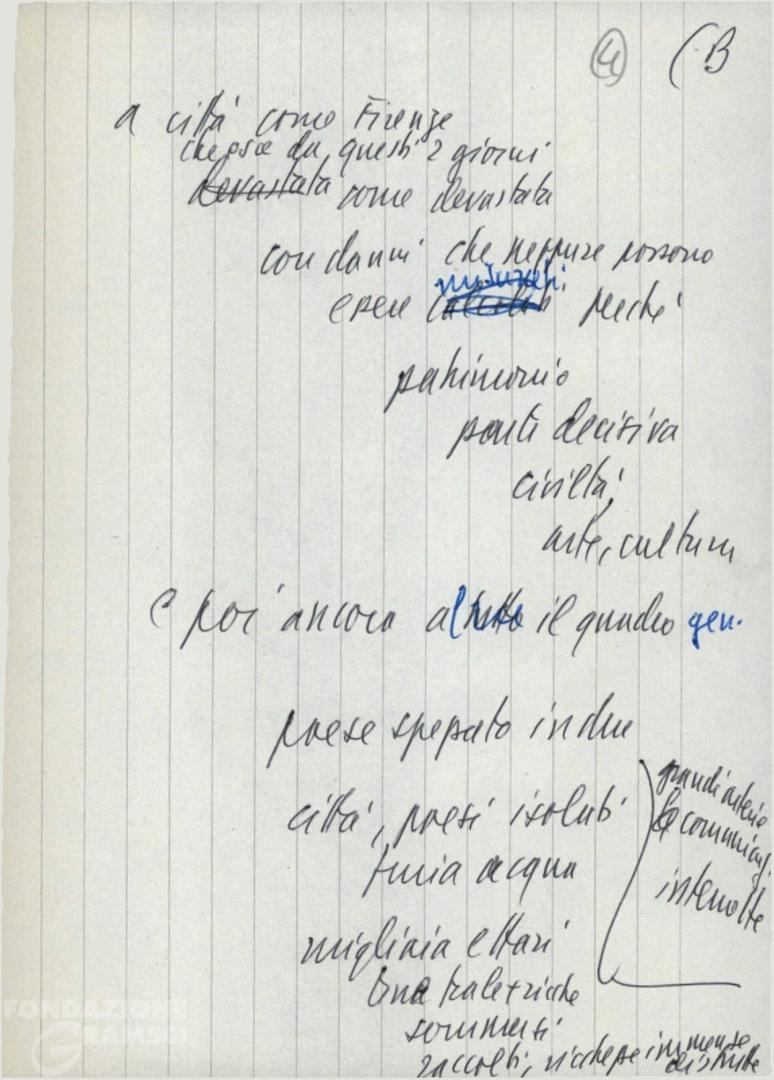 4 (B
a città come Firenze
che esce da questi 2 giorni
devastata come devastata
con danni che neppure possono
misurati
essere calcolati perché
patrimonio
parte decisiva
civiltà,
arte, cultura
e poi ancora a tutto il quadro gen.
paese spezzato in due
città, paesi isolati
furia acqua
grandi arterie
comunicaz.
interrotte
migliaia ettari
tra le + ricche
sommersi
raccolti, ricchezze immense
distrutte
FONDAZIONE
GRAMSCI